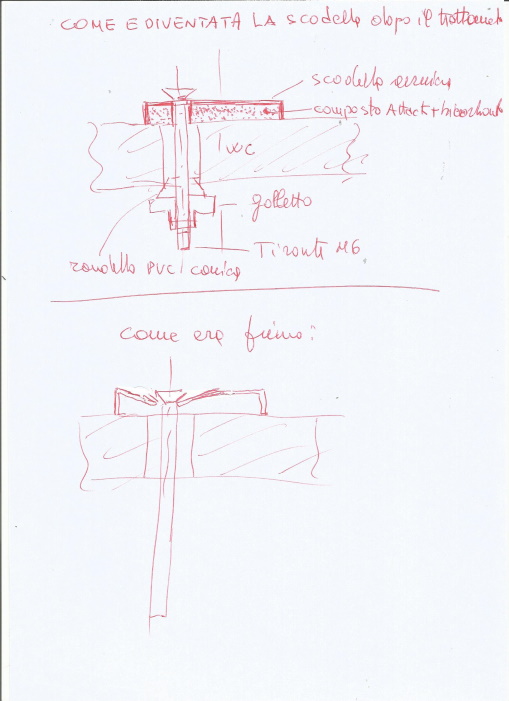 COME E DIVENTATA LA SCODELLA DOPO IL trattamento
scodella cromica
composto Attack + bicarbonato
WC
galletto
Tirante M6
rondella PVC conica
come era prima: